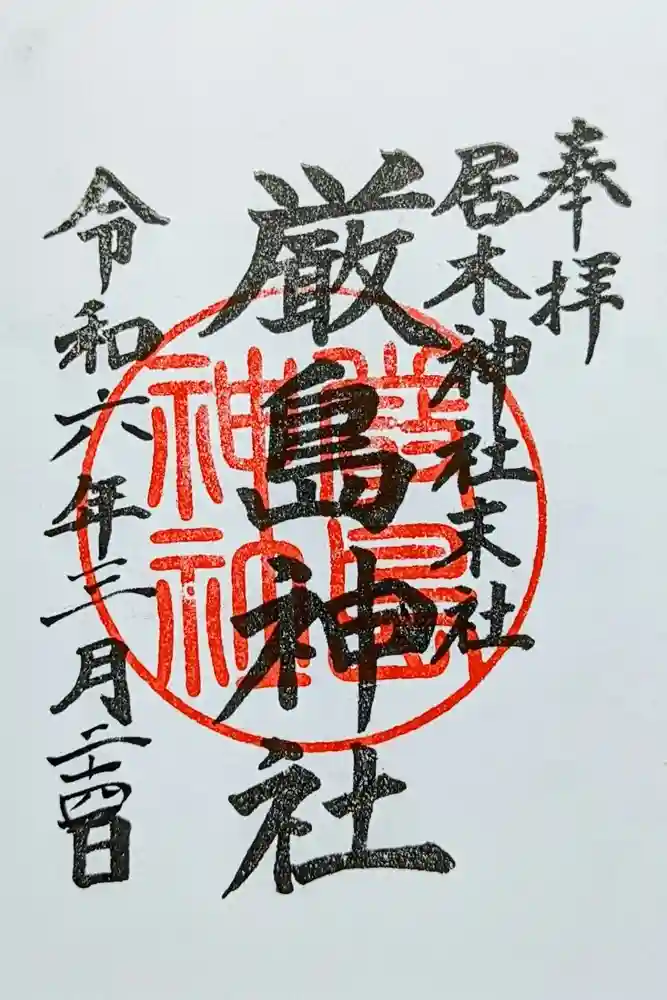 奉拝
居木神社末社
厳島神社
厳島神社
令和六年三月二十四日